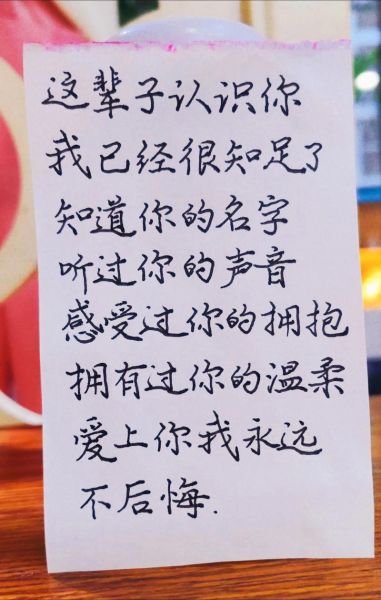 这辈子认识你
我已经很知足了
知道你的名字
听过你的声音
感受过你的拥抱
拥有过你的温柔
爱上你我永远
不后悔.